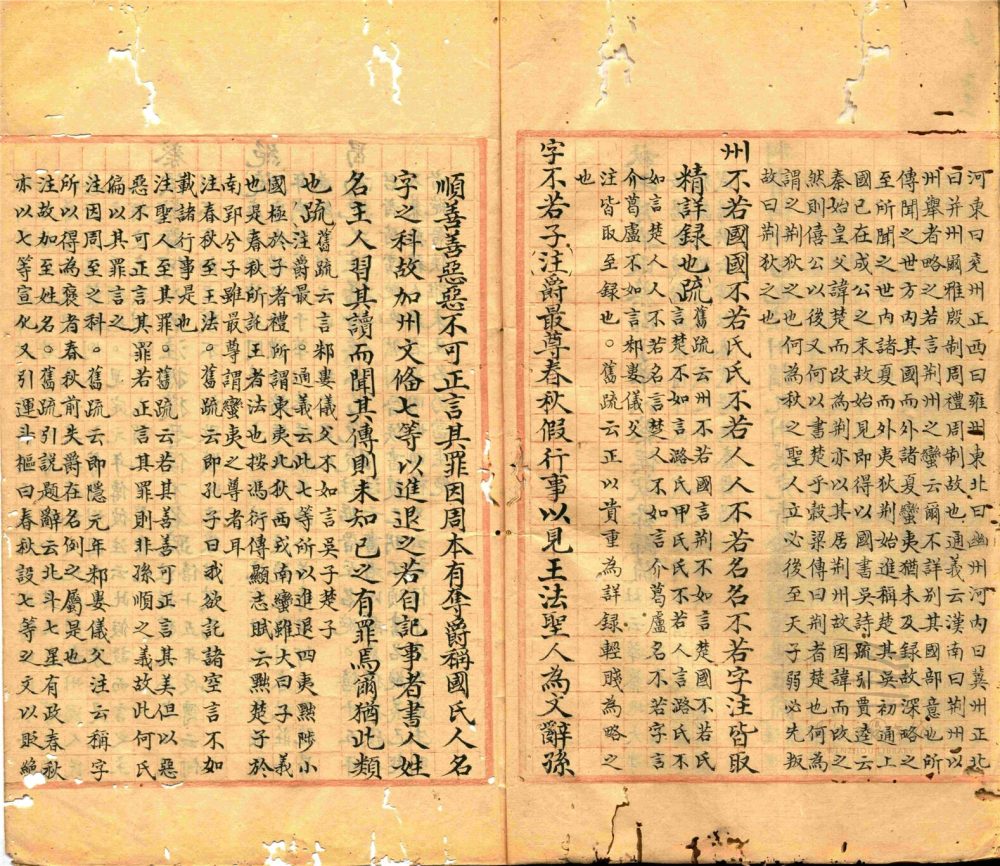 河東曰兗州正西曰雍州東北曰幽州河內曰冀州正北
曰并州爾雅殷制周禮周制故也通義云漢南曰荆州以
州舉者略之若言荆州之蠻云爾不詳別其國部意也所
傳聞之世方內其國而外諸夏蠻夷猶未及録故深略之
至所聞之世內諸夏而外夷狄即得録荆始進稱楚其吳初通上
國已在成公之末故始見亦即得以國書吳詩疏引賈逵云
秦始皇父諱楚而改為荆亦以其居荆州故因諱而改之
然則僖公以後又何以書楚乎穀梁傳曰荆者楚也何為
謂之荆狄之也何為狄之聖人立必後至天子弱必先叛
故曰荆狄之也
州不若國國不若氏氏不若人人不若名名不若字注皆取
精詳録也疏舊疏云州不若國言荆不如言楚國不若氏
言楚不如言潞氏甲氏氏不若人言潞氏不
如言楚人人不若名言楚人不如言介葛盧名不若字言
介葛盧不如言邾婁儀父
注皆取至録也。舊疏云正以貴重為詳録輕賤為略之
也
字不若子注爵最尊春秋假行事以見王法聖人為文辭孫
順善善惡惡不可正言其罪因周本有奪爵稱國氏人名
字之科故加州文備七等以進退之若自記事者書人姓
名主人習其讀而聞其傳則未知己之有罪焉爾猶此類
也疏舊疏云言邾婁儀父不如言吳子楚子
注爵最尊。通義云此七等所以進退四夷黜陟小
國極於子者禮所謂東夷北狄西戎南蠻雖大曰子義
也是春秋所託王者法也按馮衍傳顯志賦云黜楚子於
南郢兮子雖最尊謂蠻夷之尊者耳
注春秋至王法。舊疏云即孔子曰我欲託諸空言不如
載諸行事是也
注聖人至其罪。舊疏云若其善善可正言其美但以惡
惡不可正言其罪若正言其罪則非孫順之義故此何氏
偏以其罪言之
注因周至之科。舊疏云即隱元年邾婁儀父注云稱字
所以得為褒者春秋前失爵在名例之屬是也
注故加至姓名。舊疏引説題辭云北斗七星有政春秋
亦以七等宣化又引運斗樞曰春秋設七等之文以貶絶